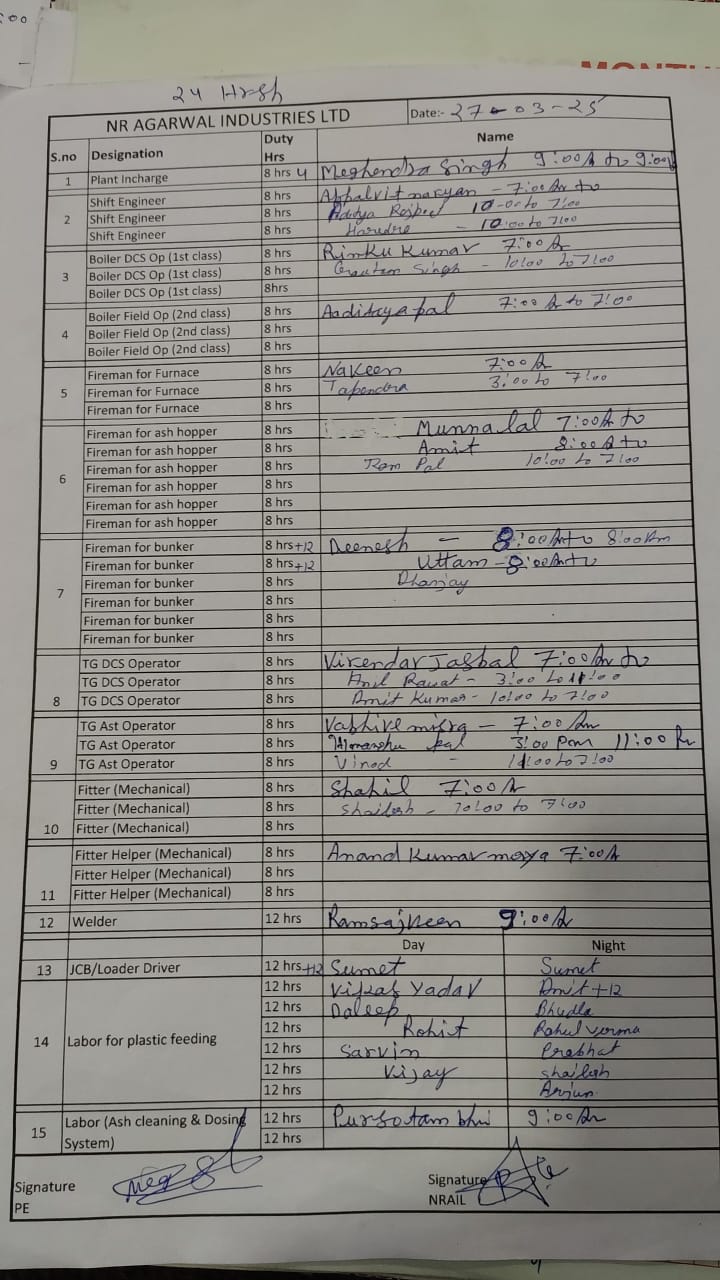 :00
MONTH
24 Hrsh
NR AGARWAL INDUSTRIES LTD Date:- 27-03-25
S.no Designation Duty Hrs Name
1 Plant Incharge 8 hrs 4 Meghendra Singh 9:00A to 9:00
2 Shift Engineer 8 hrs naryan - 7:00 Am to
Shift Engineer 8 hrs Aditya 10-00 to 7:00
Shift Engineer 8 hrs - 10:00 to 7:00
3 Boiler DCS Op (1st class) 8 hrs Rinku Kumar 7:00 A
Boiler DCS Op (1st class) 8 hrs Gautam Singh - 10:00 to 7:00
Boiler DCS Op (1st class) 8hrs
4 Boiler Field Op (2nd class) 8 hrs Aaditaya pal 7:00 A to 7:00
Boiler Field Op (2nd class) 8 hrs
Boiler Field Op (2nd class) 8 hrs
5 Fireman for Furnace 8 hrs Naveen 7:00 A
Fireman for Furnace 8 hrs Tapendra 3:00 to 7:00
Fireman for Furnace 8 hrs
6 Fireman for ash hopper 8 hrs Munnalal 7:00A to
Fireman for ash hopper 8 hrs Amit 8:00A to
Fireman for ash hopper 8 hrs Ram Pal 10:00 to 7:00
Fireman for ash hopper 8 hrs
Fireman for ash hopper 8 hrs
Fireman for ash hopper 8 hrs
7 Fireman for bunker 8 hrs+12 Deenesh - 8:00Am to 8:00Am
Fireman for bunker 8 hrs+12 Uttam - 8:00Am to
Fireman for bunker 8 hrs Dhanjay
Fireman for bunker 8 hrs
Fireman for bunker 8 hrs
Fireman for bunker 8 hrs
8 TG DCS Operator 8 hrs Virendar Jaspal 7:00Am to
TG DCS Operator 8 hrs Anil Rawat - 3:00 to 11:00
TG DCS Operator 8 hrs Amit Kumar - 10:00 to 7:00
9 TG Ast Operator 8 hrs misra - 7:00 Am
TG Ast Operator 8 hrs Himanshu pal 3:00 Pm 11:00 Pm
TG Ast Operator 8 hrs Vinod - to 7:00
10 Fitter (Mechanical) 8 hrs Shahil 7:00 A
Fitter (Mechanical) 8 hrs Shailesh - 10:00 to 7:00
Fitter (Mechanical) 8 hrs
11 Fitter Helper (Mechanical) 8 hrs Anand Kumar morya 7:00A
Fitter Helper (Mechanical) 8 hrs
Fitter Helper (Mechanical) 8 hrs
12 Welder 12 hrs Ramsajheen 9:00 A
Day Night
13 JCB/Loader Driver 12 hrs+12 Sumet Sumet
14 Labor for plastic feeding 12 hrs Vikas Yadav Amit +12
12 hrs Daleep Bhudla
12 hrs Rohit Rahul Verma
12 hrs Sarvin Prabhat
12 hrs Vijay Shailesh
12 hrs Arjun
15 Labor (Ash cleaning & Dosing System) 12 hrs Pursotam bhi 9:00 Am
12 hrs
Signature PE
Signature NRAIL